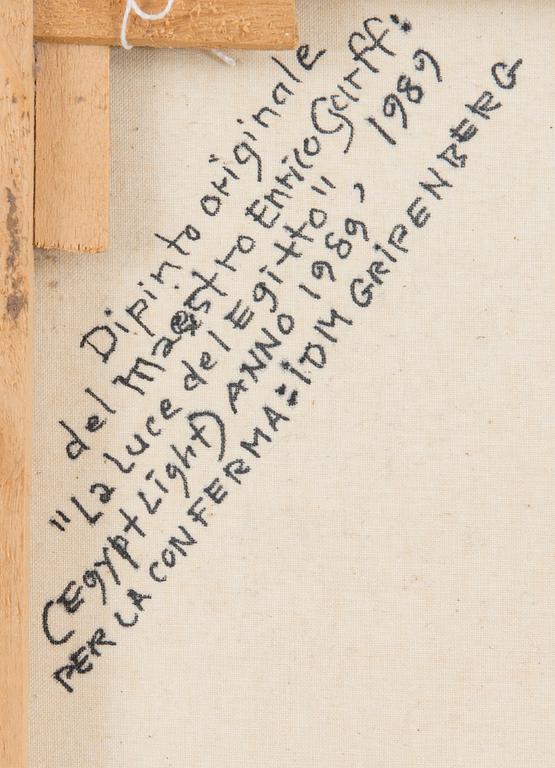 Dipinto originale
del maestro Enrico Garff:
"La luce del Egitto" 1989
(Egypt Light) ANNO 1989,
PER LA CONFERMA: IDIM GRIPENBERG